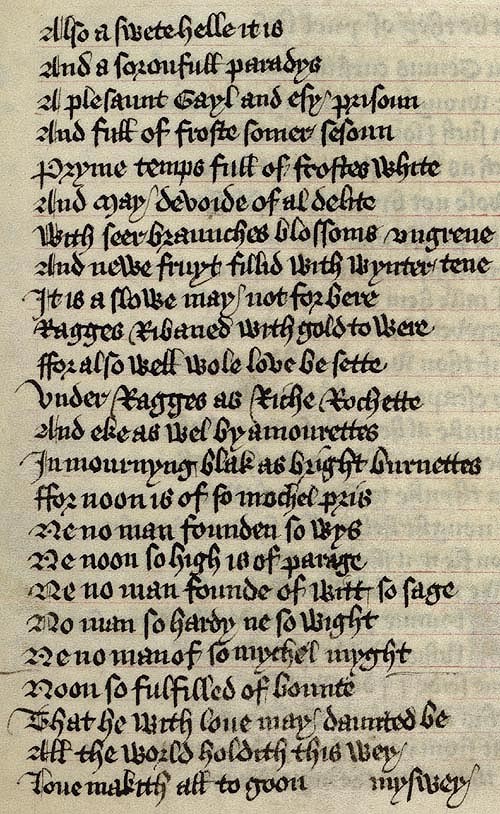 Also a swete helle it is
And a soroufull paradys
A plesaunt Gayl and esy prisoun
And full of froste somer sesoun
Pryme temps full of frostes white
And may devoide of al delite
With seer braunches blossoms vngrene
And newe fruyt fillid with wynter tene
It is a slowe may not forbere
Ragges Ribaned with gold to were
ffor also well wole love be sette
Vnder Ragges as Riche Rochette
And eke as wel by amourettes
In mournyng blak as bright burnettes
ffor noon is of so mochel pris
Ne no man founden so wys
Ne noon so high is of parage
Ne no man founde of witt so sage
No man so hardy ne so wight
Ne no man of so mychel myght
Noon so fulfilled of bounte
That he with loue may daunted be
All the world holdith this wey
Loue makith all to goon mys wey